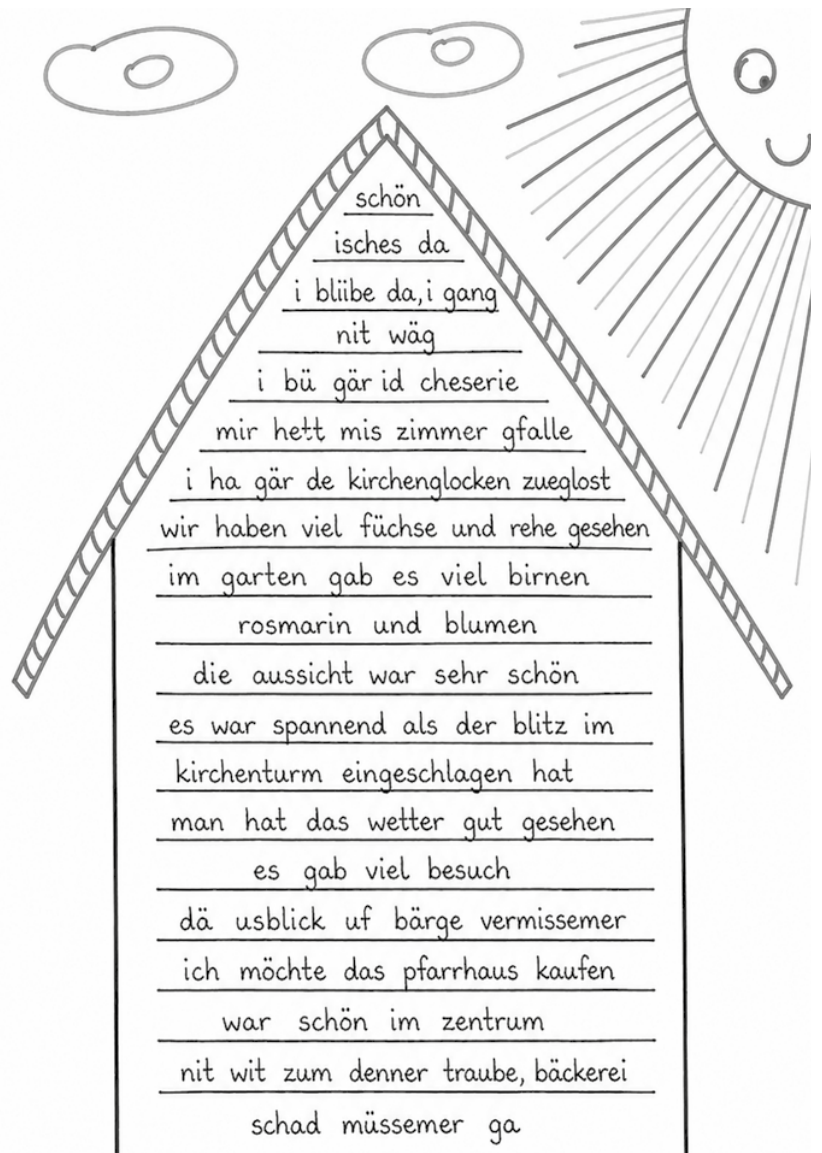 schön
isches da
i bliibe da, i gang
nit wäg
i bü gär id cheserie
mir hett mis zimmer gfalle
i ha gär de kirchenglocken zueglost
wir haben viel füchse und rehe gesehen
im garten gab es viel birnen
rosmarin und blumen
die aussicht war sehr schön
es war spannend als der blitz im
kirchenturm eingeschlagen hat
man hat das wetter gut gesehen
es gab viel besuch
dä usblick uf bärge vermissemer
ich möchte das pfarrhaus kaufen
war schön im zentrum
nit wit zum denner traube, bäckerei
schad müssemer ga